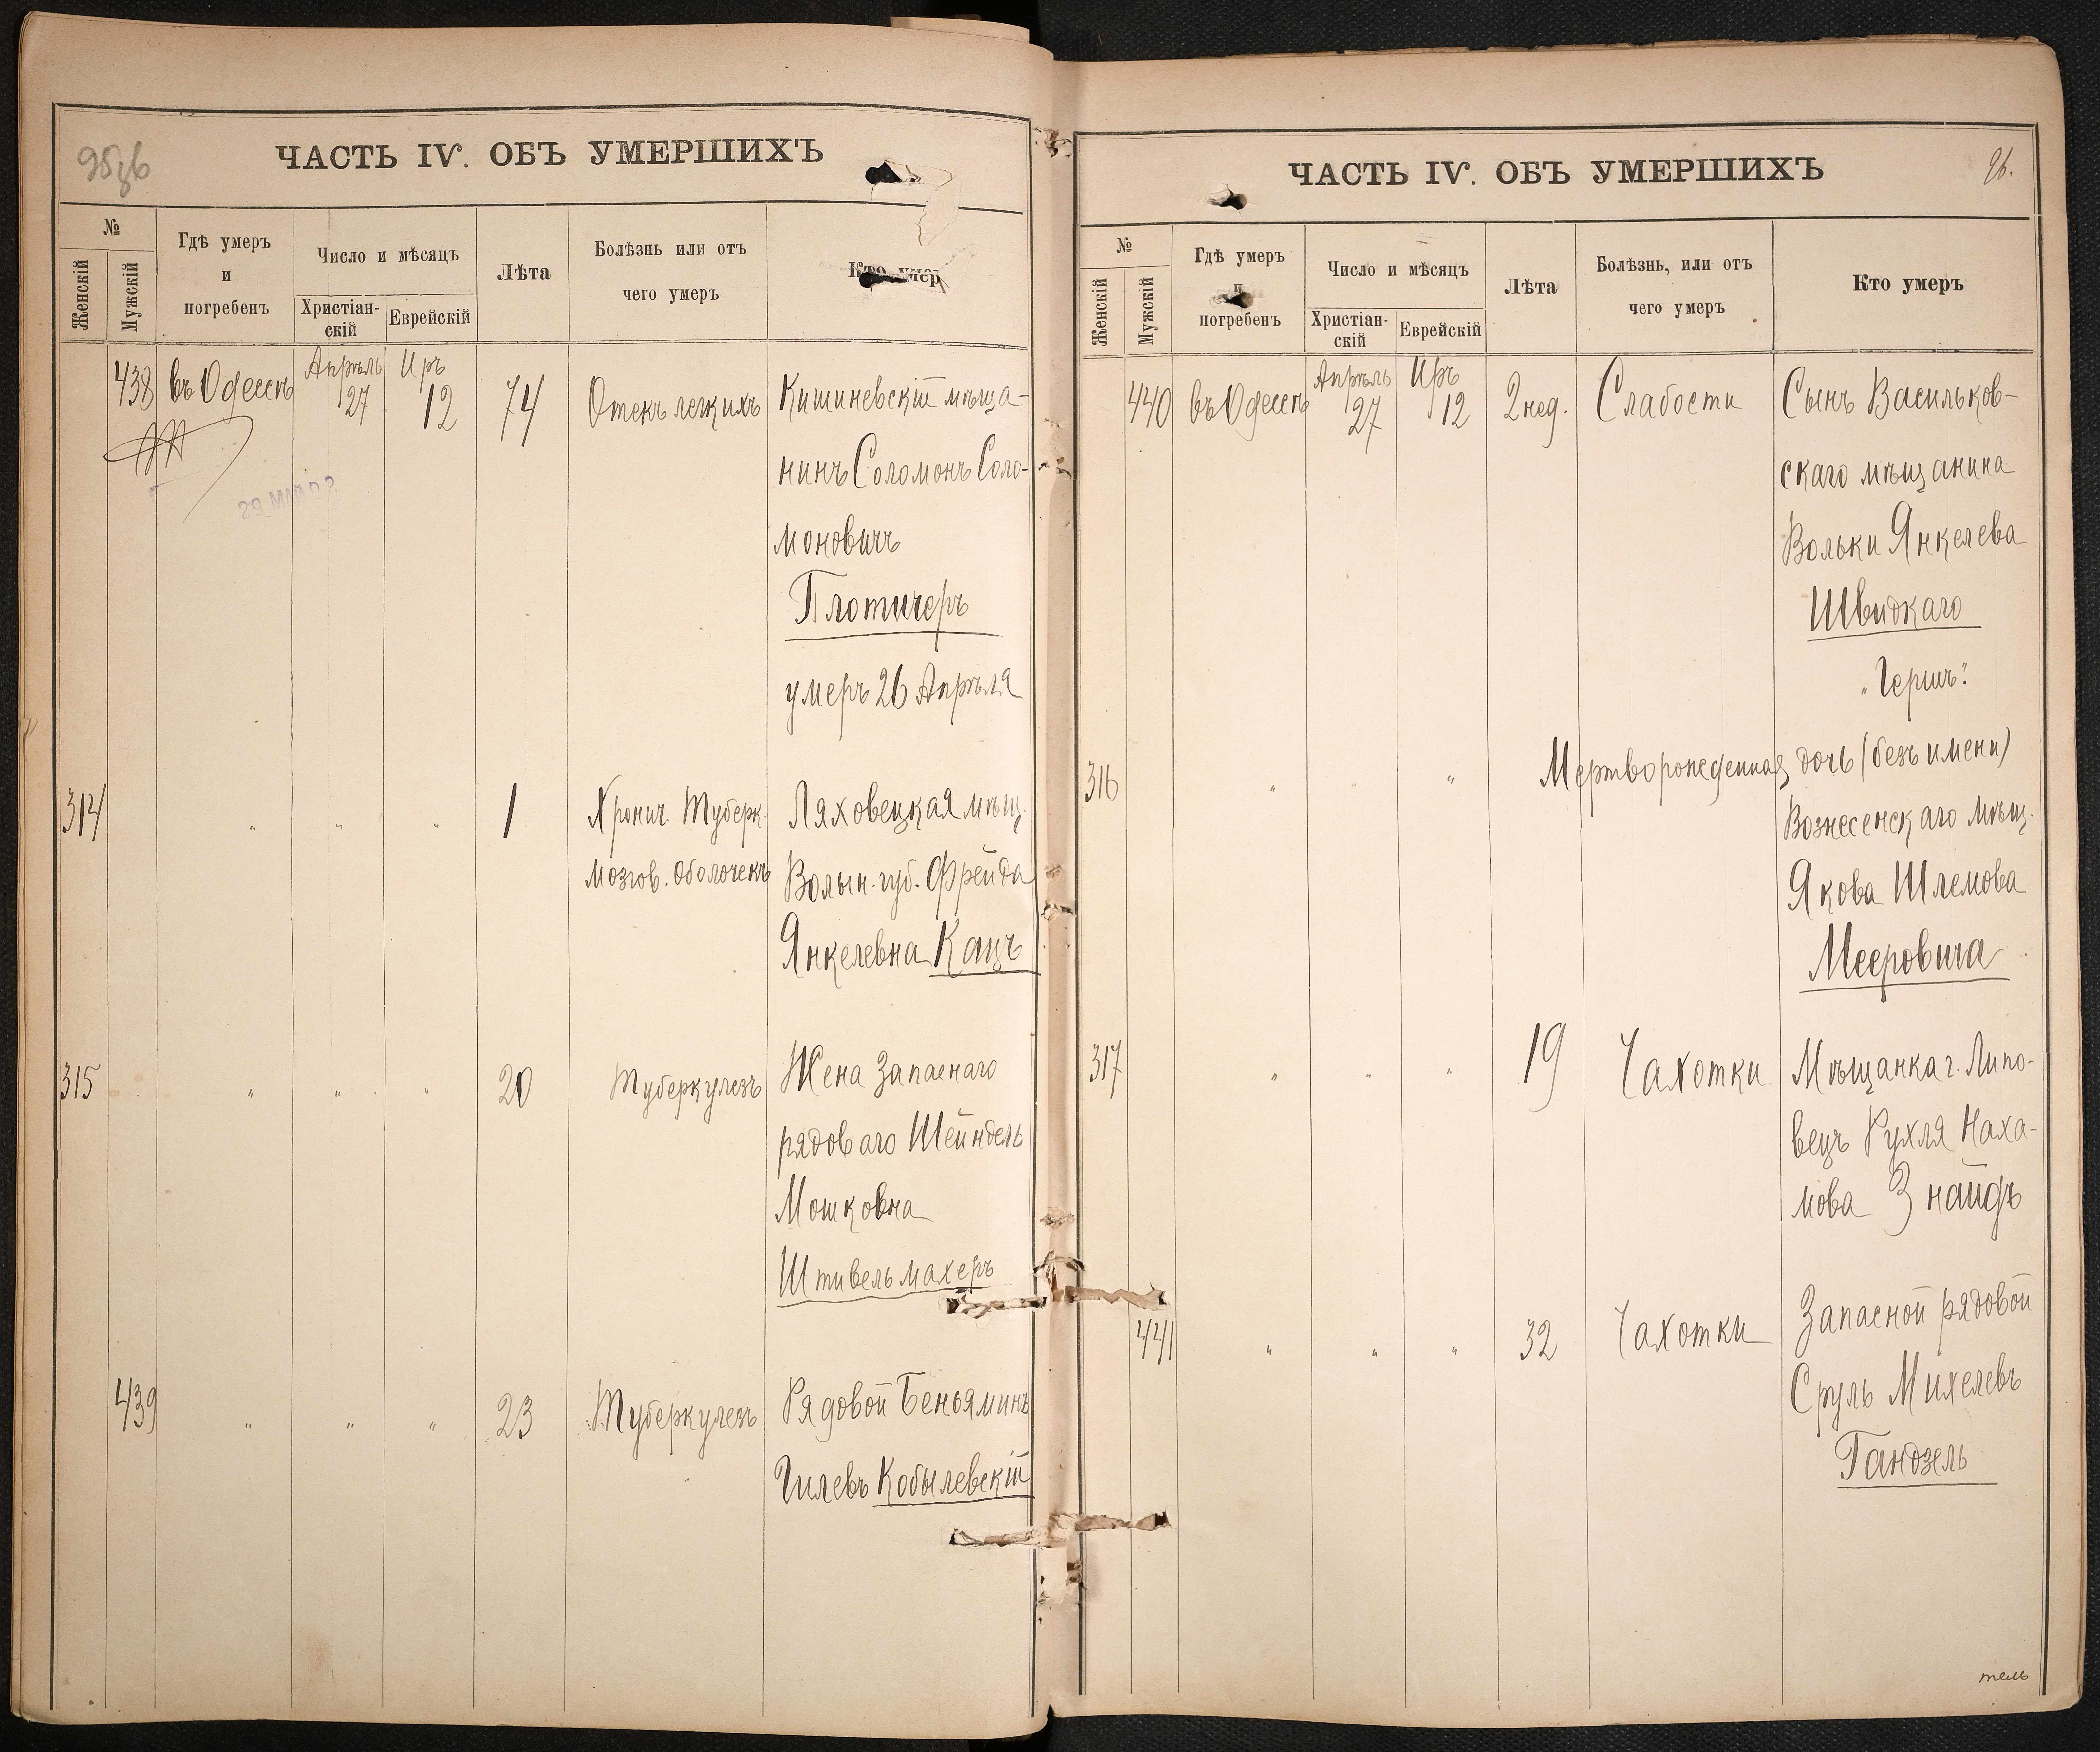 95об
ЧАСТЬ IV. ОБЪ УМЕРШИХЪ
№
Женскій
Мужскій
Гдѣ умеръ
и
погребенъ
Число и мѣсяцъ
Христіан-
скій
Еврейскій
Лѣта
Болѣзнь или отъ
чего умеръ
Кто умер
438 въ Одессѣ Апрѣль 27 Иръ 12 74 Отекъ легкихъ Кишиневскій мѣща-
нинъ Соломонъ Соло-
29 МАЙ
моновичъ
Плотичеръ
умеръ 26 Апрѣля
314 " " " 1 Хронич. Туберк. Ляховецкая мѣщ.
мозгов. оболочекъ Волын. губ. Фрейда
Янкелевна Кацъ
315 " " " 20 Туберкулезъ Жена Запаснаго
рядоваго Шейндель
Мошковна
Штивельмахеръ
439 " " " 23 Туберкулезъ Рядовой Беньяминъ
Гилевъ Кобылевскій
96.
ЧАСТЬ IV. ОБЪ УМЕРШИХЪ
№
Женскій
Мужскій
Гдѣ умеръ
и
погребенъ
Число и мѣсяцъ
Христіан-
скій
Еврейскій
Лѣта
Болѣзнь, или отъ
чего умеръ
Кто умеръ
440 въ Одессѣ Апрѣль 27 Иръ 12 2 нед. Слабости Сынъ Васильков-
скаго мѣщанина
Вольки Янкелева
Швидкаго
"Гершъ".
316 " " Мертворожденная дочь (безъ имени)
Вознесенскаго мѣщ.
Якова Шлемова
Мееровича
317 " " " 19 Чахотки Мѣщанка г. Липо-
вецъ Рухля Наха-
мова Знайдъ
441 " " " 32 Чахотки Запасной рядовой
Сруль Михелевъ
Гандзель